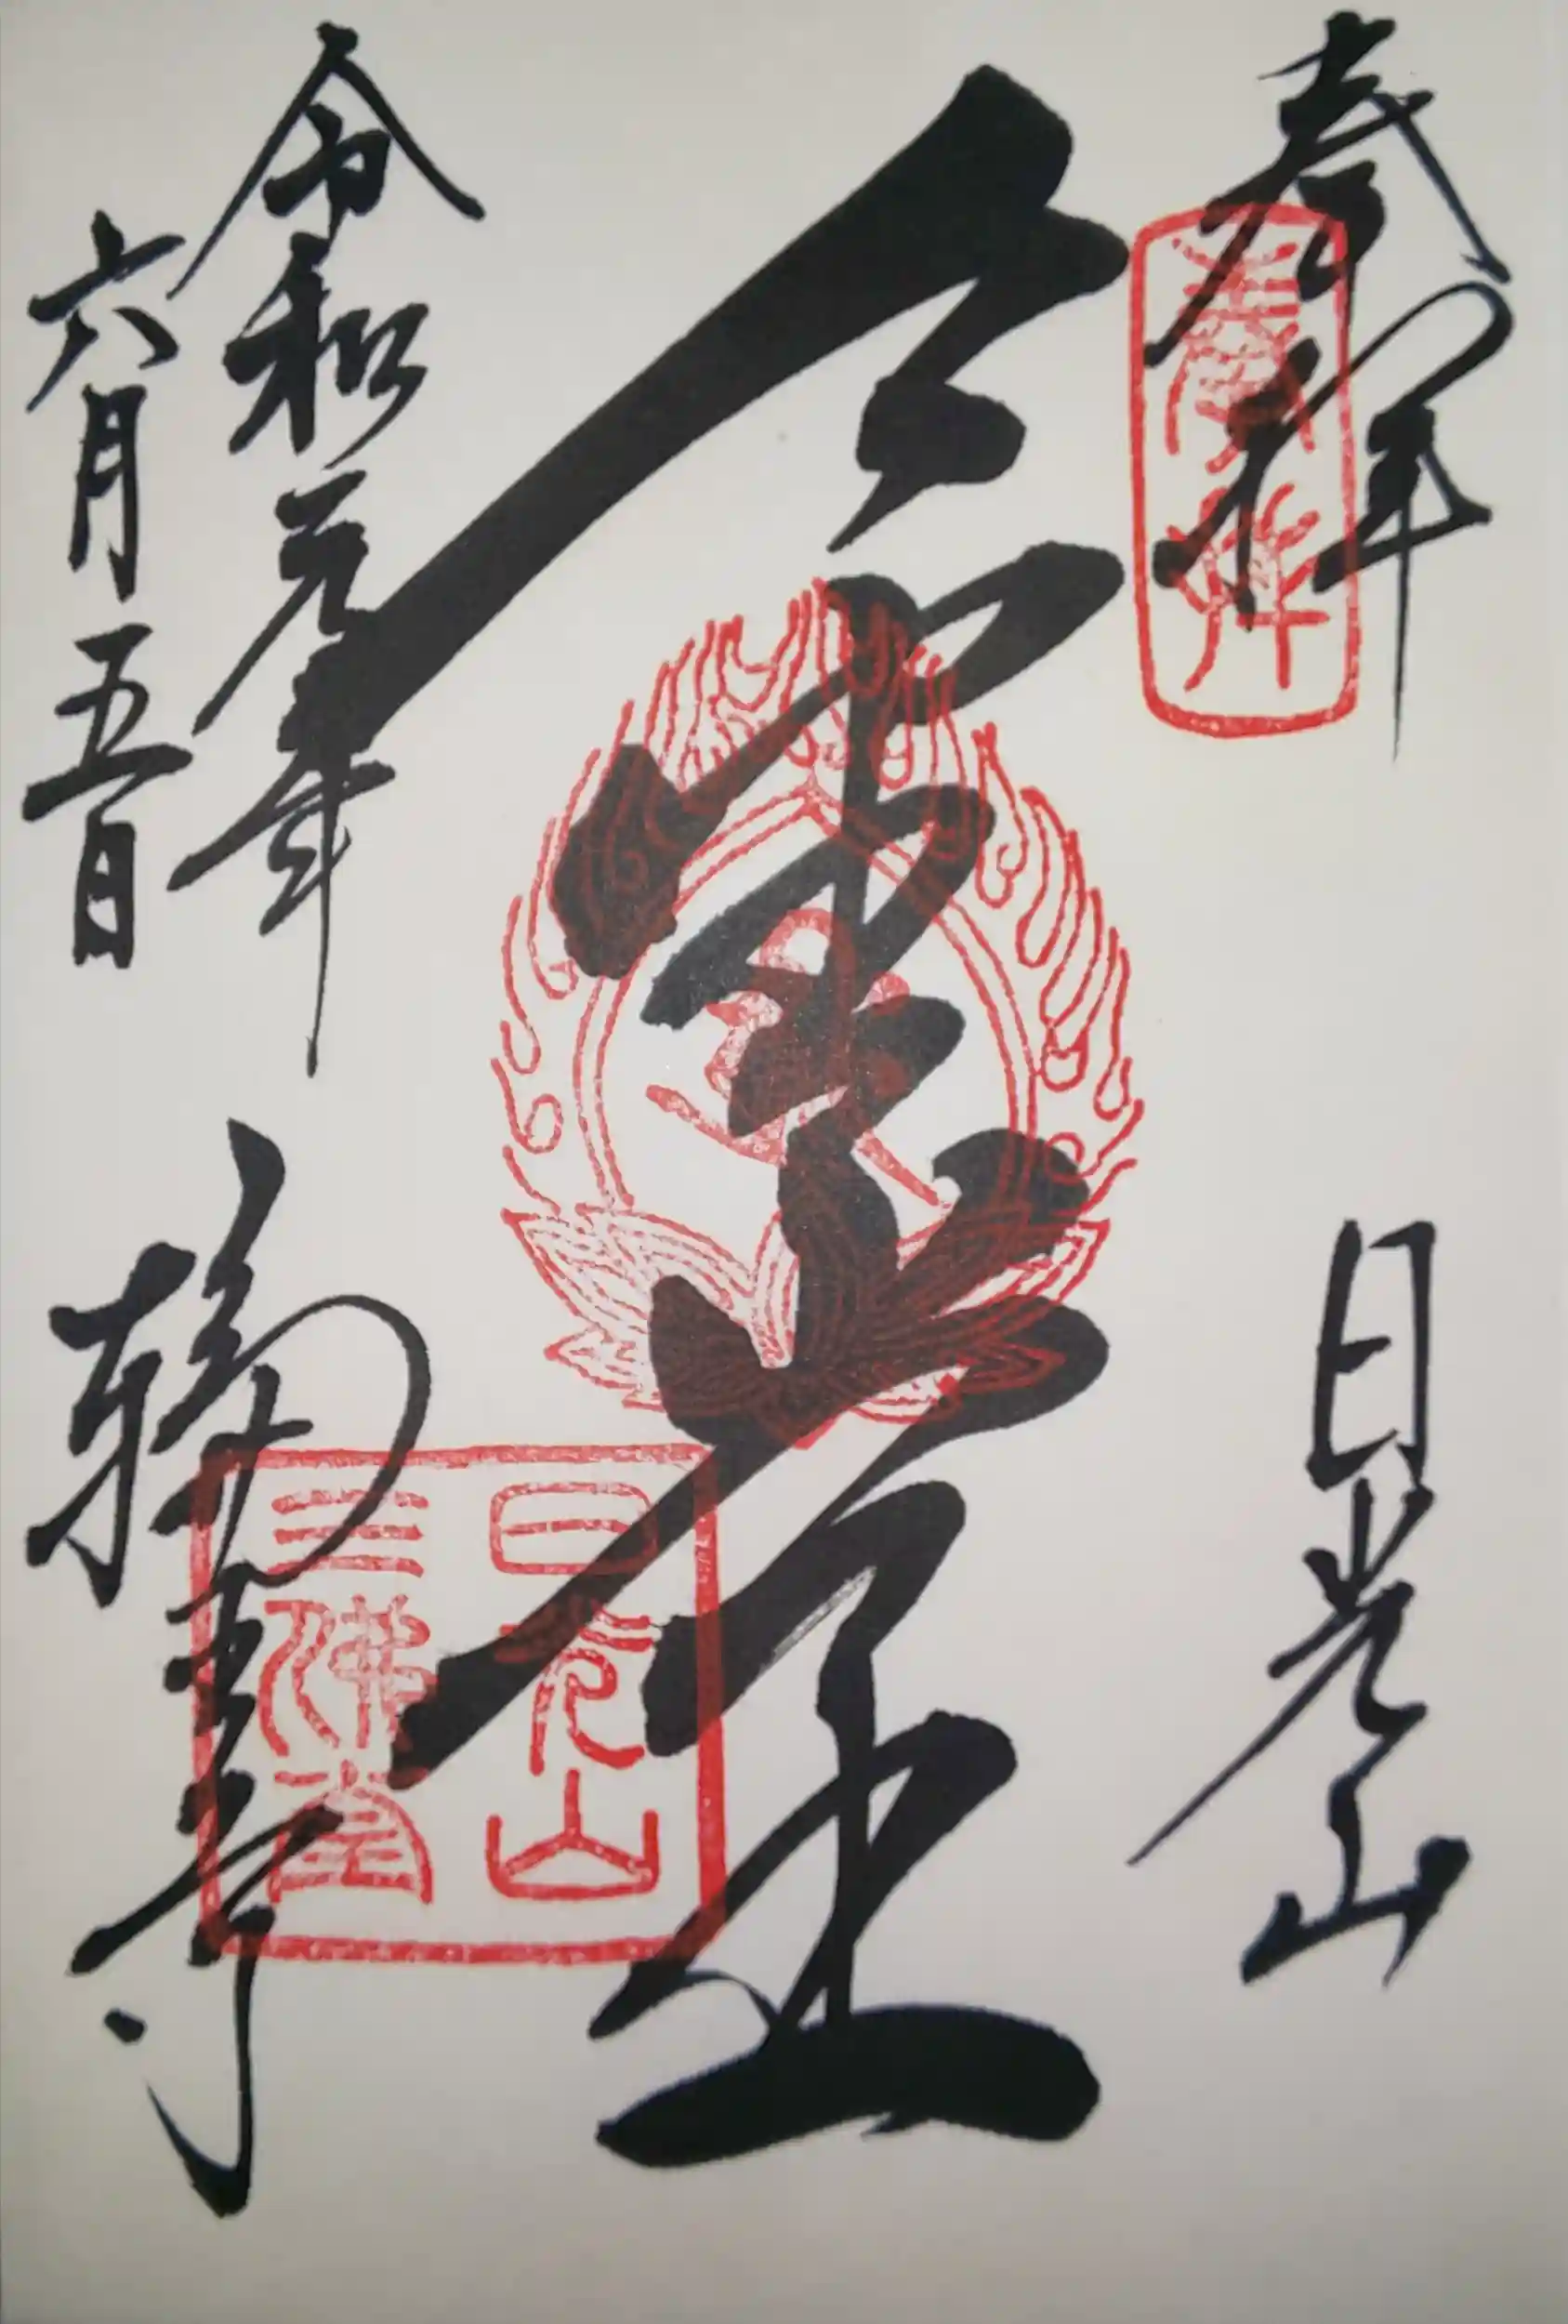 奉拝
奉拝
日光山
金堂
日光山
三佛堂
令和元年
六月五日
輪王寺